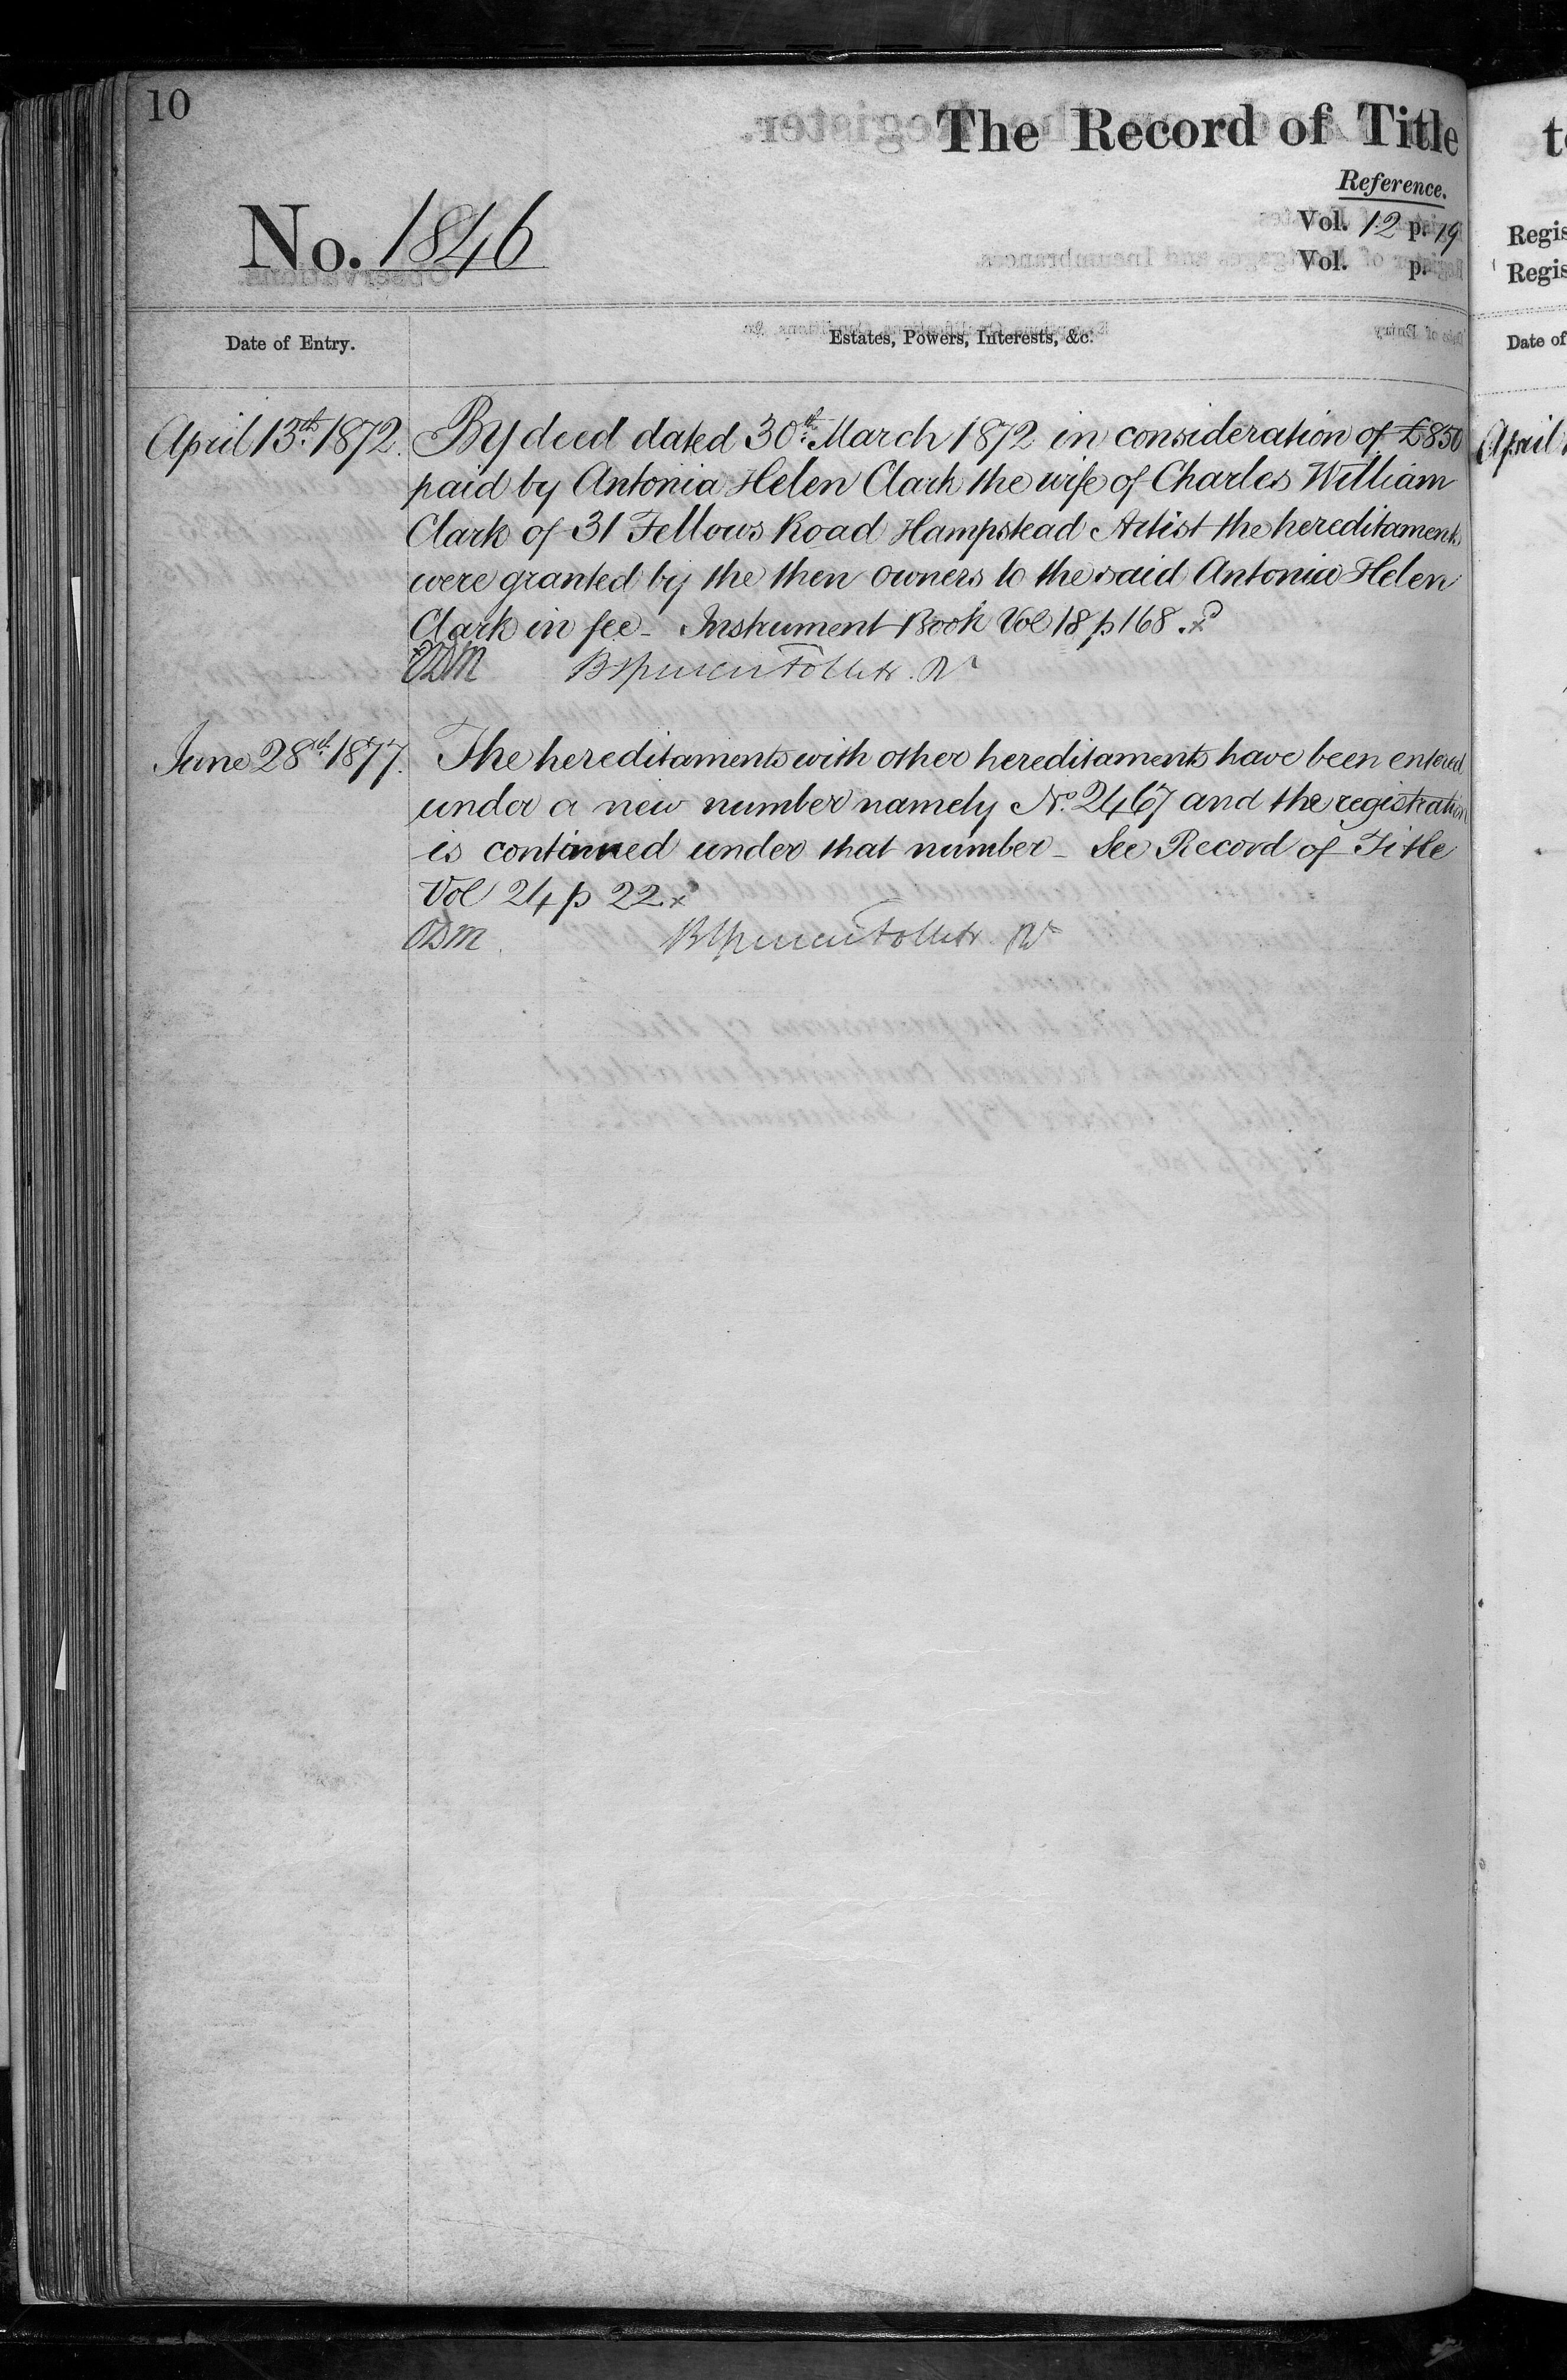 10
The Record of Title
Reference.
No. 1846
Vol. 12 p. 19
Vol. p.
Date of Entry.
Estates, Powers, Interests, &c.
April 13th. 1872.
By deed dated 30th. March 1872 in consideration of £850
paid by Antonia Helen Clark the wife of Charles William
Clark of 31 Fellows Road Hampstead Artist the hereditaments
were granted by the then owners to the said Antonia Helen
Clark in fee - Instrument Book Vol 18 p 168.
June 28th. 1877.
The hereditaments with other hereditaments have been entered
under a new number namely No. 2467 and the registration
is continued under that number - See Record of Title
Vol 24 p 22.
Regis
Regis
Date of
April